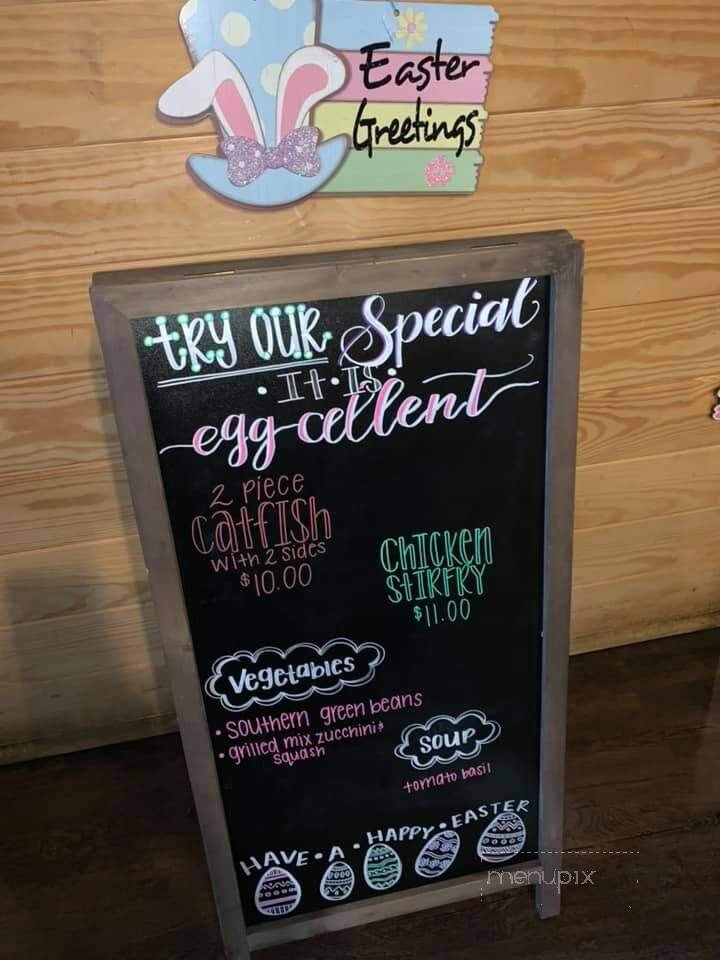 Easter
Greetings
tRy OUR Special
• It • IS •
egg-cellent
2 Piece
CatfISh
with 2 sides
$10.00
ChIcKen
StIRFRY
$11.00
Vegetables
• southern green beans
• grilled mix zucchini &
squash
soup
tomato basil
HAVE • A • HAPPY • EASTER
menupix